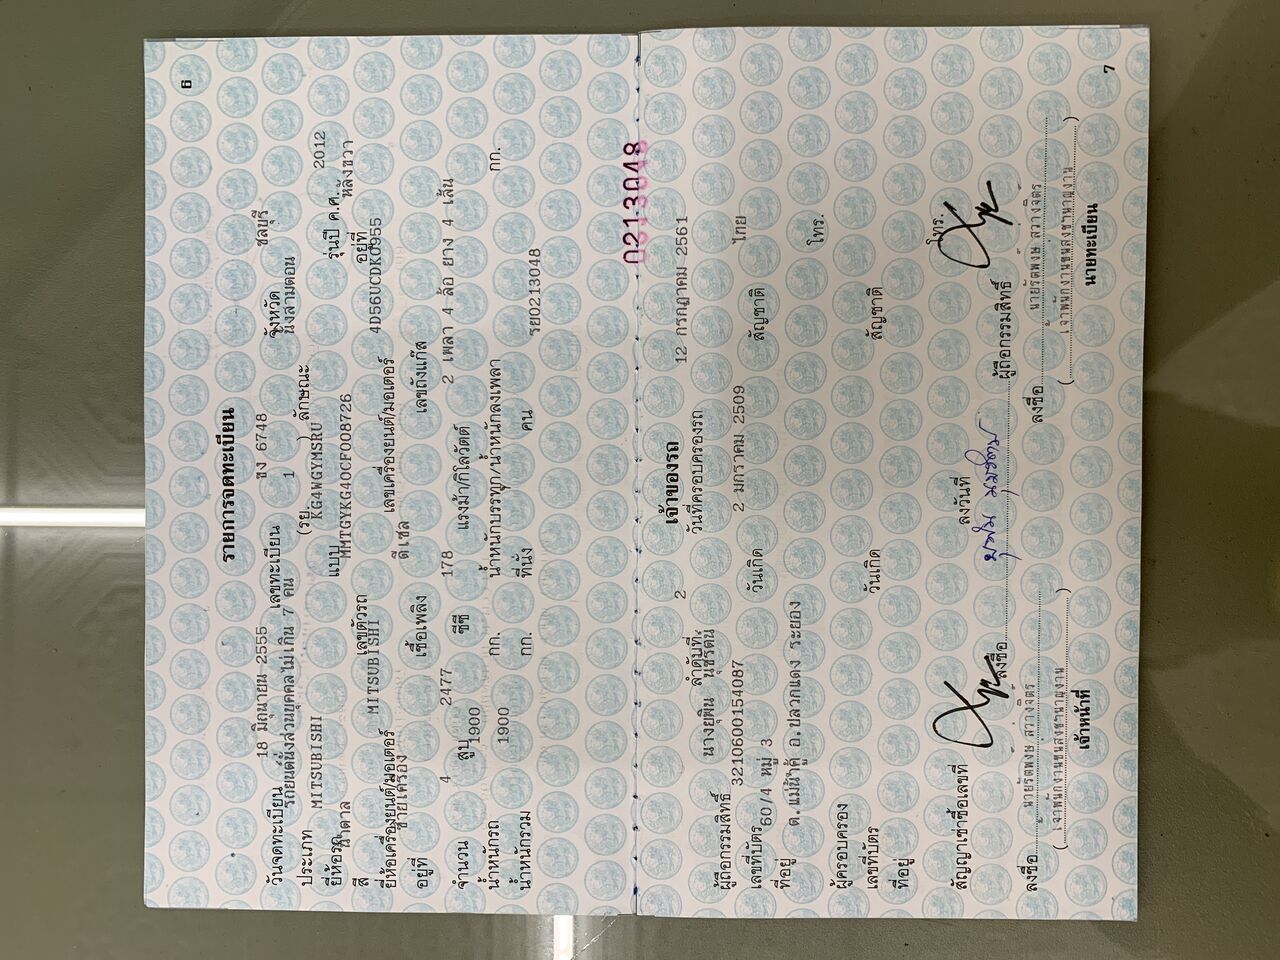 6
รายการจดทะเบียน
วันจดทะเบียน 18 มิถุนายน 2555 เลขทะเบียน ขง 6748 จังหวัด ชลบุรี
ประเภท รถยนต์นั่งส่วนบุคคลไม่เกิน 7 คน (รย. 1 ) ลักษณะ นั่งสามตอน
ยี่ห้อรถ MITSUBISHI แบบ KG4WGYMSRU รุ่นปี ค.ศ. 2012
สี น้ำตาล เลขตัวรถ MMTGYKG40CF008726 อยู่ที่ หลังขวา
ยี่ห้อเครื่องยนต์/มอเตอร์ MITSUBISHI เลขเครื่องยนต์/มอเตอร์ 4D56UCDK0955
อยู่ที่ ซ้ายเครื่อง เชื้อเพลิง ดีเซล เลขถังแก๊ส
จำนวน 4 สูบ 2477 ซีซี 178 แรงม้า/กิโลวัตต์ 2 เพลา 4 ล้อ ยาง 4 เส้น
น้ำหนักรถ 1900 กก. น้ำหนักบรรทุก/น้ำหนักลงเพลา กก.
น้ำหนักรวม 1900 กก. ที่นั่ง คน รย0213048
0213048
เจ้าของรถ
ลำดับที่ 2 วันที่ครอบครองรถ 12 กรกฎาคม 2561
ผู้ถือกรรมสิทธิ์ นางยุพิน นุชรัตน์
เลขที่บัตร 3210600154087 วันเกิด 2 มกราคม 2509 สัญชาติ ไทย
ที่อยู่ 60/4 หมู่ 3
ต.แม่น้ำคู้ อ.ปลวกแดง ระยอง โทร.
ผู้ครอบครอง
เลขที่บัตร วันเกิด สัญชาติ
ที่อยู่ โทร.
สัญญาเช่าซื้อเลขที่ ลงวันที่
ลงชื่อ ผู้ถือกรรมสิทธิ์
ลงชื่อ นายรัตพงษ์ สว่างจิตร ลงชื่อ นายรัตพงษ์ สว่างจิตร
(เจ้าพนักงานขนส่งชำนาญงาน) (เจ้าพนักงานขนส่งชำนาญงาน)
เจ้าหน้าที่ นายทะเบียน
7